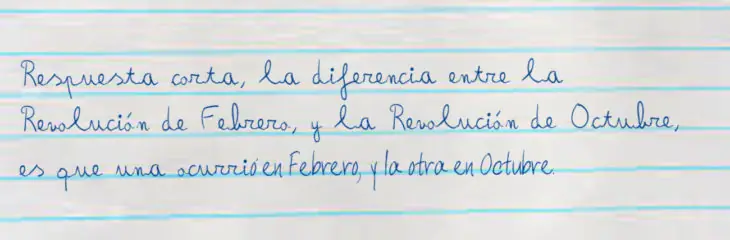 Respuesta corta, la diferencia entre la
Revolución de Febrero, y la Revolución de Octubre,
es que una ocurrió en Febrero, y la otra en Octubre.